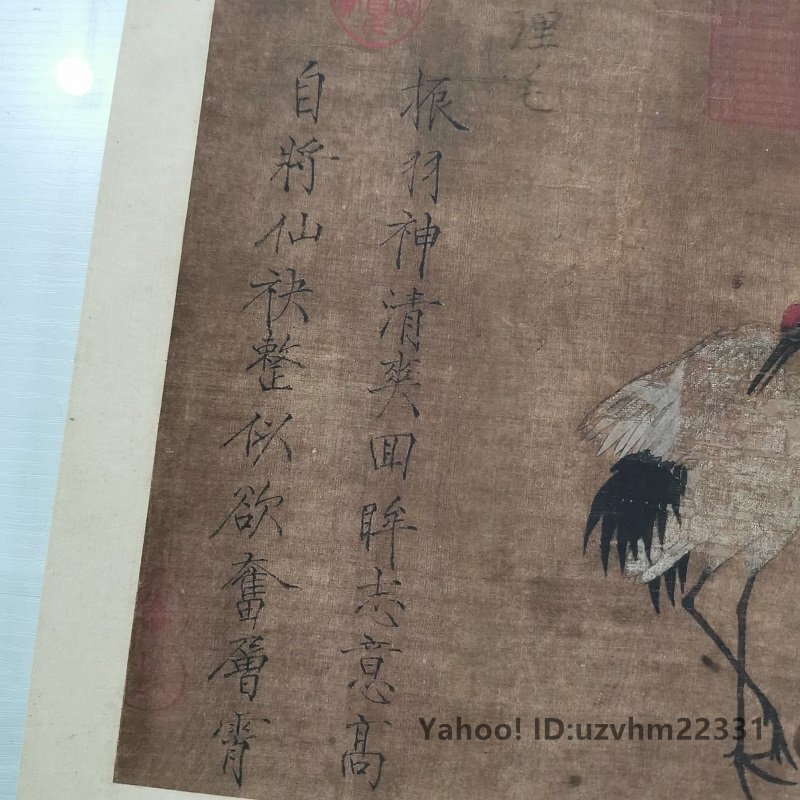 理毛
振羽神清爽回眸志意高
自將仙袂整似欲奮層霄
Yahoo! ID:uzvhm22331